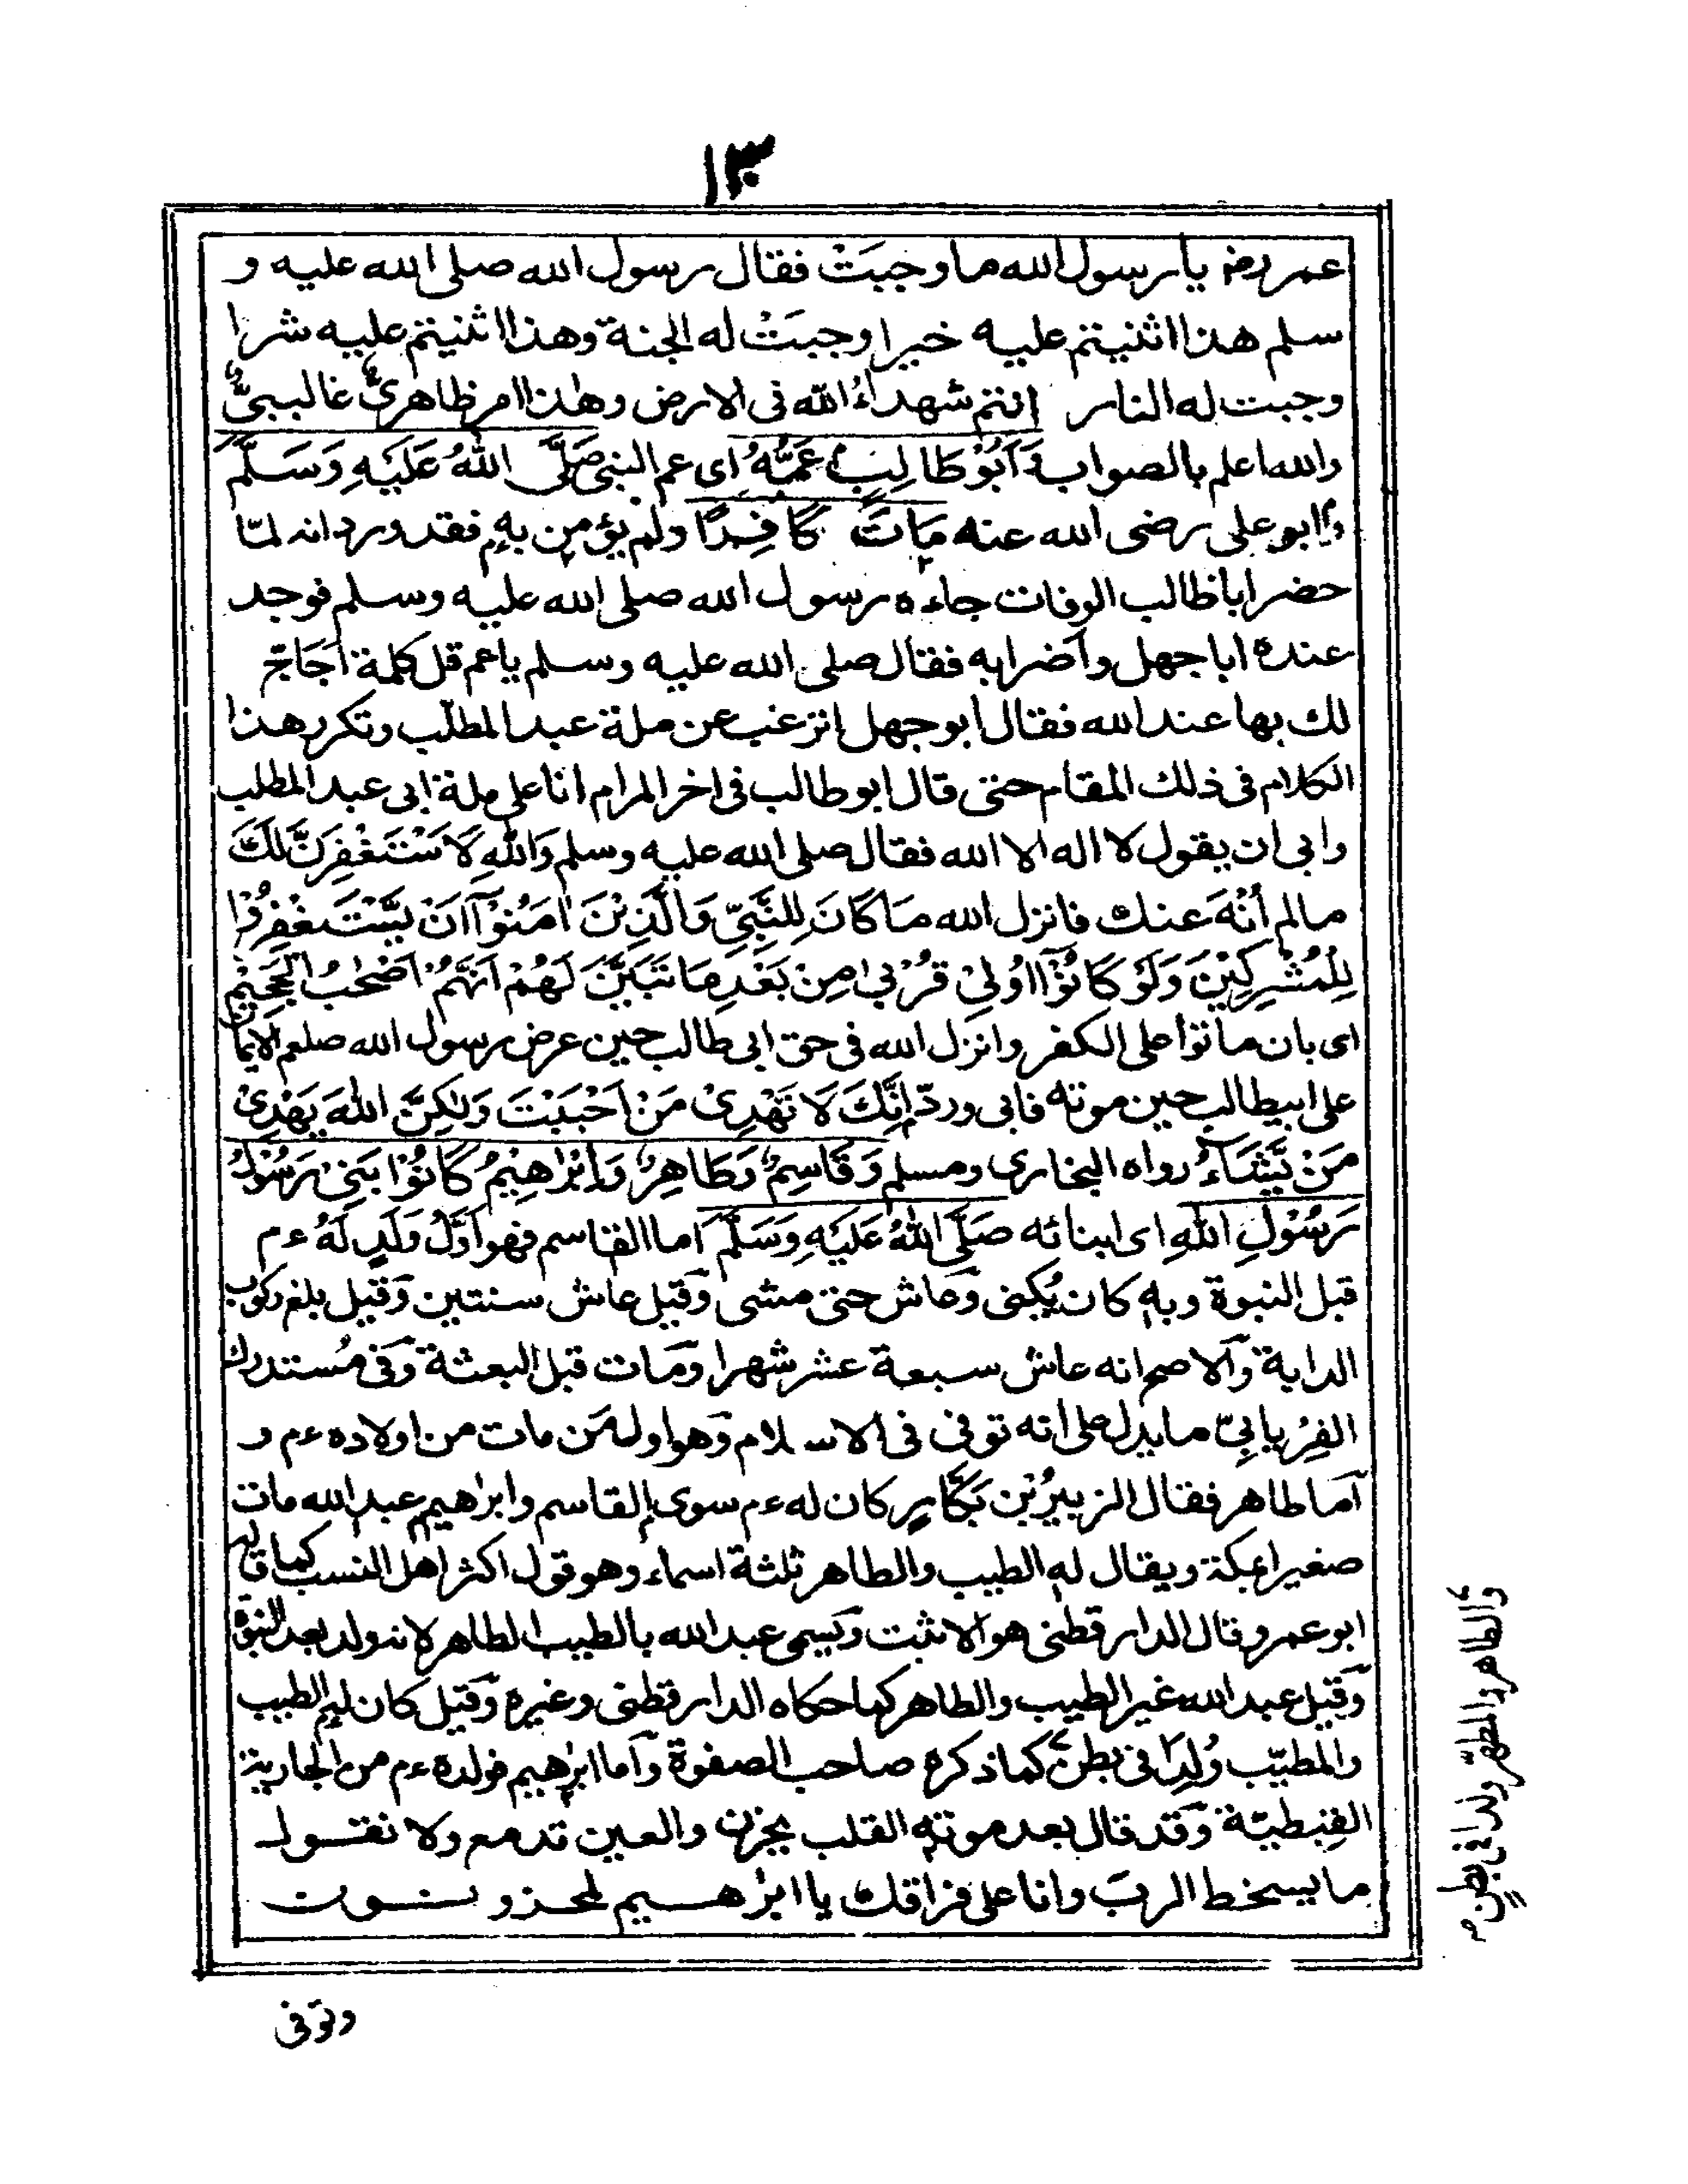 ١٣
عمر رضـ يا رسول الله ما وجبَتْ فقال رسول الله صلى الله عليه و
سلم هذا اثنيتم عليه خيرا وجبَتْ له الجنة وهذا اثنيتم عليه شرا
وجبت له النار انتم شهداءُ الله فى الارض وهذا امر ظاهرىٌّ غالبىٌّ
والله اعلم بالصواب وَاَبُوْ طَالِبٍ عَمُّهُ اى عم النبى صَلَّى اللهُ عَلَيْهِ وَسَلَّمَ
وابو على رضى الله عنه مَاتَ كَافِرًا ولم يؤمن به فقد ورد انه لمّا
حضر ابا طالب الوفات جاءه رسول الله صلى الله عليه وسلم فوجد
عنده ابا جهل واضرابه فقال صلى الله عليه وسلم يا عم قل كلمة اُجَاجّ
لك بها عند الله فقال ابو جهل اترغب عن ملة عبد المطلّب وتكرر هذا
الكلام فى ذلك المقام حتى قال ابو طالب فى اخر المرام انا على ملة ابى عبد المطلب
وابى ان يقول لا اله الا الله فقال صلى الله عليه وسلم وَاللهِ لَاَسْتَغْفِرَنَّ لَكَ
مالم اُنْهَ عنك فانزل الله مَا كَانَ لِلنَّبِيِّ وَالَّذِيْنَ اٰمَنُوْٓا اَنْ يَّسْتَغْفِرُوْا
لِلْمُشْرِكِيْنَ وَلَوْ كَانُوْٓا اُولِىْ قُرْبٰى مِنْ بَعْدِ مَا تَبَيَّنَ لَهُمْ اَنَّهُمْ اَصْحٰبُ الْجَحِيْمِ
اى بان ماتوا على الكفر وانزل الله فى حق ابى طالب حين عرض رسول الله صلعم الايمان
على ابيطالب حين موته فابى وردّ اِنَّكَ لَا تَهْدِىْ مَنْ اَحْبَبْتَ وَلٰكِنَّ اللهَ يَهْدِىْ
مَنْ يَّشَآءُ رواه البخارى ومسلم وَقَاسِمٌ وَطَاهِرٌ وَاِبْرٰهِيْمُ كَانُوْا بَنِىْ رَسُوْلِ
رَسُوْلِ اللهِ اى ابنائه صَلَّى اللهُ عَلَيْهِ وَسَلَّمَ اما القاسم فهو اَوَّلُ وَلَدٍ لَهُ ءم
قبل النبوة وبه كان يُكنى وَعاش حتى مشى وَقيل عاش سنتين وَقيل بلغ ركوب
الدابة وَالاصح انه عاش سبعة عشر شهرا وَمات قبل البعثة وَفى مُستدرك
الفِرْيابِىّ ما يدل على انه توفى فى الاسلام وَهو اول مَن مات من اولاده ءم و
اَما طاهر فقال الزبيرُ بْن بَكَّارٍ كان له ءم سوى القاسم وابرٰهيم عبد الله مات
صغيرا بمكة ويقال له الطيب والطاهر ثلثة اسماء وهو قول اكثر اهل النسب كما قاله
ابو عمر وقال الدارقطنى هو الاثبت وَيسمى عبد الله بالطيب الطاهر لانه ولد بعد النبوة
وَقيل عبد الله غير الطيب والطاهر كما حكاه الدارقطنى وغيره وَقيل كان له الطيب
والمطيّب وُلِدَا فى بطن كما ذكره صاحب الصفوة وَاما ابرٰهيم فولده ءم من الجارية
القِبطيّة وَقد قال بعد موته القلب يحزن والعين تدمع ولا نقول
ما يسخط الرب وانا على فراقك يا ابرٰهيم لمحزونون
والطاهر والمطهّر ولدا فى بطنٍ م
وتوفى